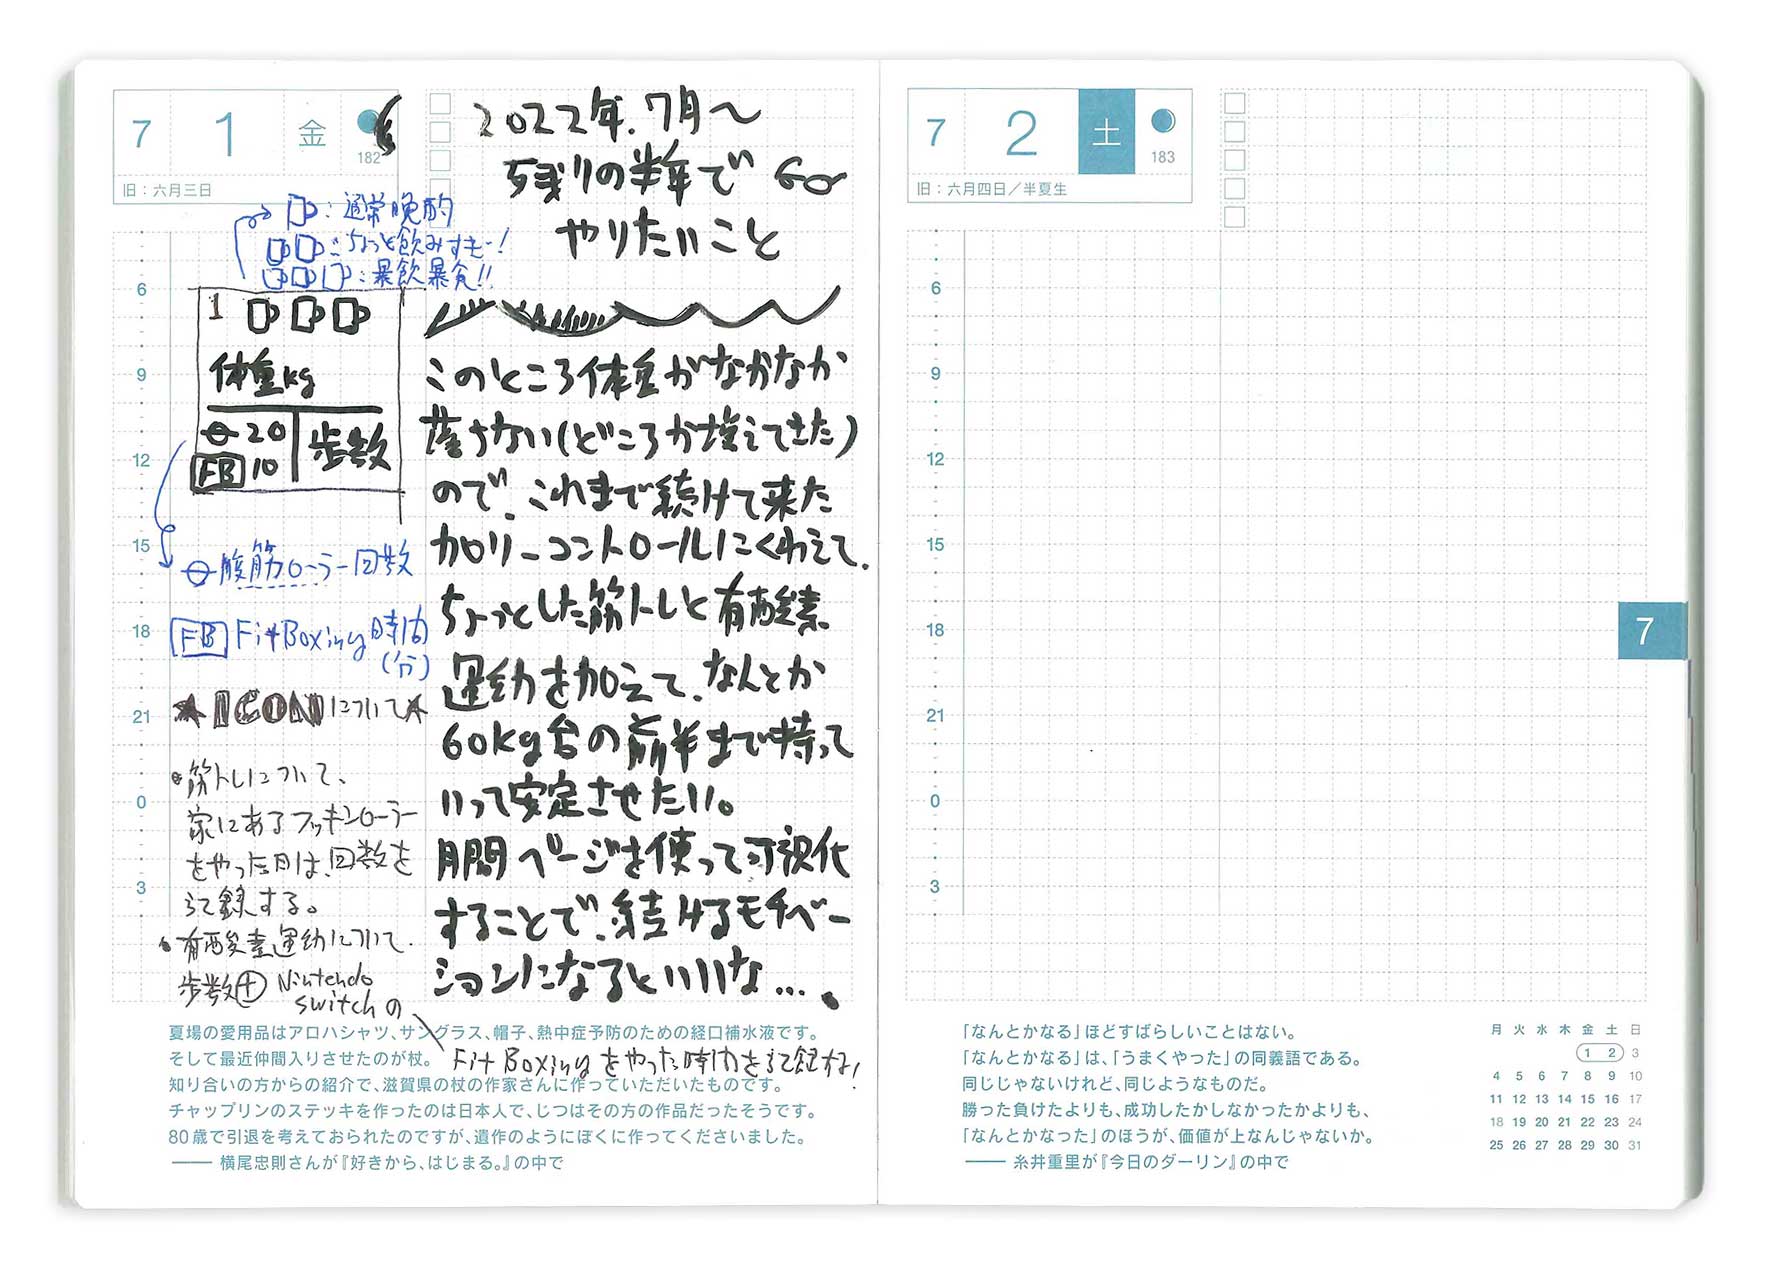 7 1 金
182
旧：六月三日
2022年.7月〜
残りの半年で
やりたいこと
：通常晩酌
：ちょっと飲みすぎー！
：暴飲暴食!!
6
9
12
15
18
21
0
3
1
体重kg
20
FB 10
歩数
腹筋ローラー回数
FB Fit Boxing 時間
（分）
★ICONについて★
・筋トレについて、
家にあるフッキンローラー
をやった日は、回数を
記録する。
・有酸素運動について.
歩数＋Nintendo
switchの
Fit Boxingをやった時間を記録する！
このところ体重がなかなか
落ちない(どころか増えてきた)
ので、これまで続けて来た
カロリーコントロールにくわえて、
ちょっとした筋トレと有酸素
運動を加えて、なんとか
60kg台の前半まで持って
いって安定させたい。
月間ページを使って可視化
することで、続けるモチベー
ションになるといいな….
夏場の愛用品はアロハシャツ、サングラス、帽子、熱中症予防のための経口補水液です。
そして最近仲間入りさせたのが杖。
知り合いの方からの紹介で、滋賀県の杖の作家さんに作っていただいたものです。
チャップリンのステッキを作ったのは日本人で、じつはその方の作品だったそうです。
80歳で引退を考えておられたのですが、遺作のようにぼくに作ってくださいました。
—— 横尾忠則さんが『好きから、はじまる。』の中で
7 2 土
183
旧：六月四日／半夏生
6
9
12
15
18
21
0
3
7
「なんとかなる」ほどすばらしいことはない。
「なんとかなる」は、「うまくやった」の同義語である。
同じじゃないけれど、同じようなものだ。
勝った負けたよりも、成功したかしなかったかよりも、
「なんとかなった」のほうが、価値が上なんじゃないか。
—— 糸井重里が『今日のダーリン』の中で
月 火 水 木 金 土 日
1 2 3
4 5 6 7 8 9 10
11 12 13 14 15 16 17
18 19 20 21 22 23 24
25 26 27 28 29 30 31